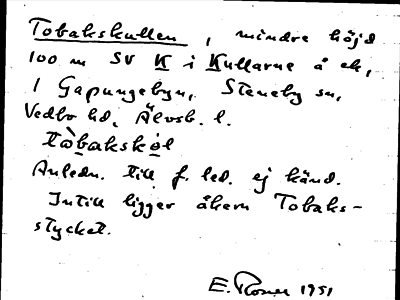 Tobakskullen, mindre höjd
100 m SV K i Kullarne å ek,
i Gapungebyn, Steneby sn,
Vedbo hd, Älvsb. l.
tòbaksko̱l
Anledn. till f. led. ej känd.
Intill ligger åkern Tobaks-
stycket.
E. 1951